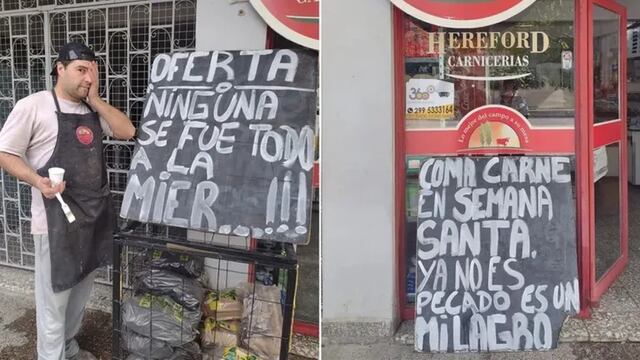 OFERTA
NINGUNA
SE FUE TODO
A LA
MIER....!!!
HEREFORD
CARNICERIAS
360
299 6333164
Lo mejor del campo a su mesa
COMA CARNE
EN SEMANA
SANTA.
YA NO ES
PECADO ES UN
MILAGRO